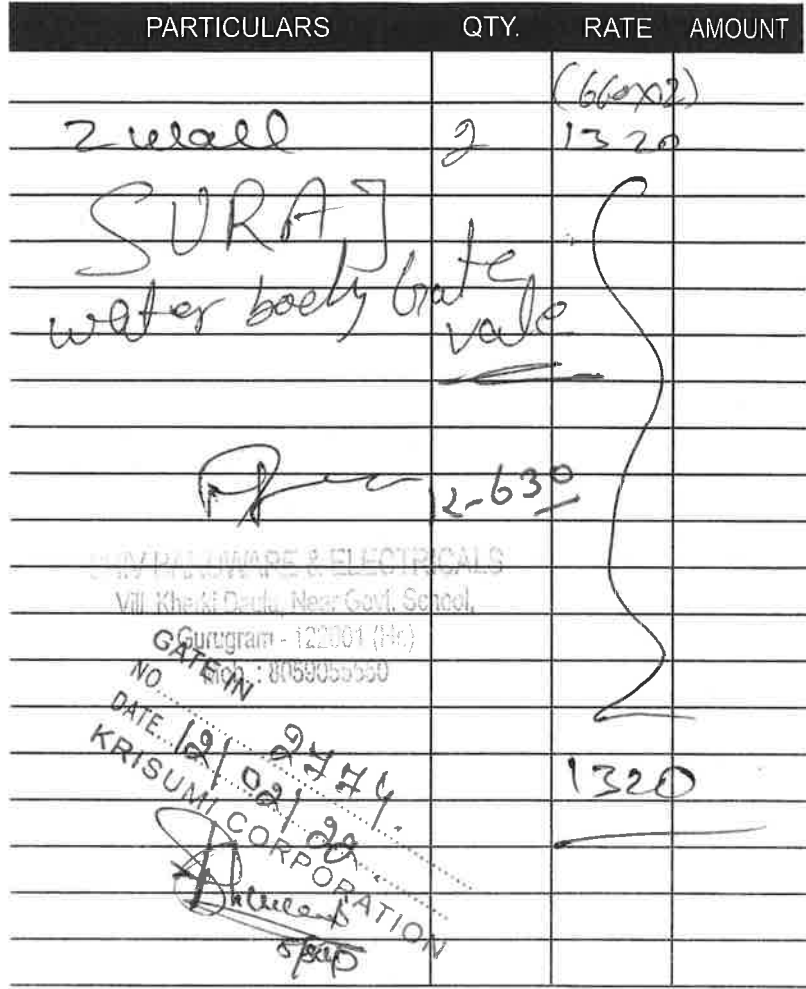 PARTICULARS QTY. RATE AMOUNT
(660x2)
2 2 1320
SURAJ
water body Gate
vale
2-630
HARDWARE & ELECTRICALS
Vill. Kherki Daula, Near Govt. School,
Gurugram - 122001 (Hr)
Mob. : 8059055550
GATE IN
NO. 2774
DATE 12/02/22
KRISUMI CORPORATION
1320